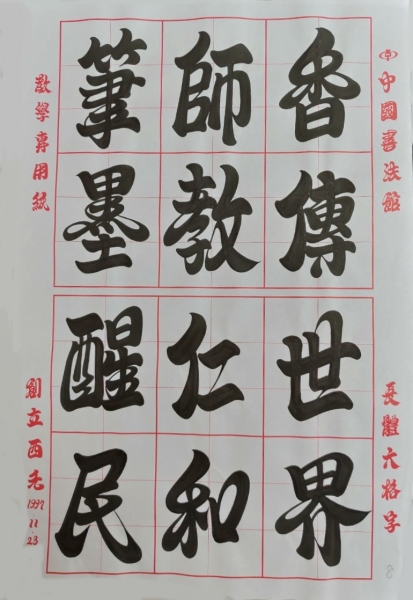 中國書法館
長體六格字
香傳世界
師教仁和
筆墨醒民
教學專用紙
創立西元1997 11.23
8